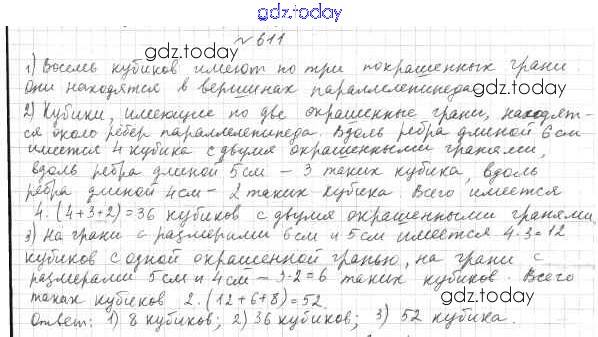 gdz.today
gdz.today
№ 611
1) Восемь кубиков имеют по три покрашенных грани.
Они находятся в вершинах параллелепипеда
gdz.today
2) Кубики, имеющие по две окрашенные грани, находят-
ся около рёбер параллелепипеда. Вдоль ребра длиной 6 см
имеется 4 кубика с двумя окрашенными гранями,
вдоль ребра длиной 5 см – 3 таких кубика, вдоль
ребра длиной 4 см – 2 таких кубика. Всего имеется
4·(4+3+2)=36 кубиков с двумя окрашенными гранями
gdz.today
3) На грани с размерами 6 см и 5 см имеется 4·3=12
кубиков с одной окрашенной гранью, на грани с
размерами 5 см и 4 см – 3·2=6 таких кубиков. Всего
таких кубиков 2·(12+6+8)=52.
gdz.today
Ответ: 1) 8 кубиков; 2) 36 кубиков; 3) 52 кубика.